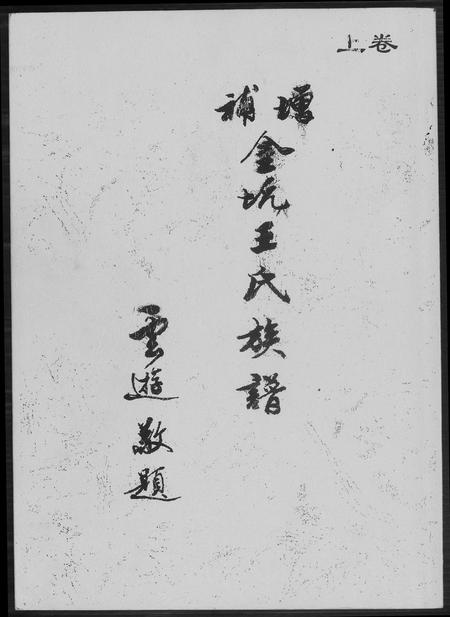 卷上
增補
金坑王氏族譜
雲遊敬題